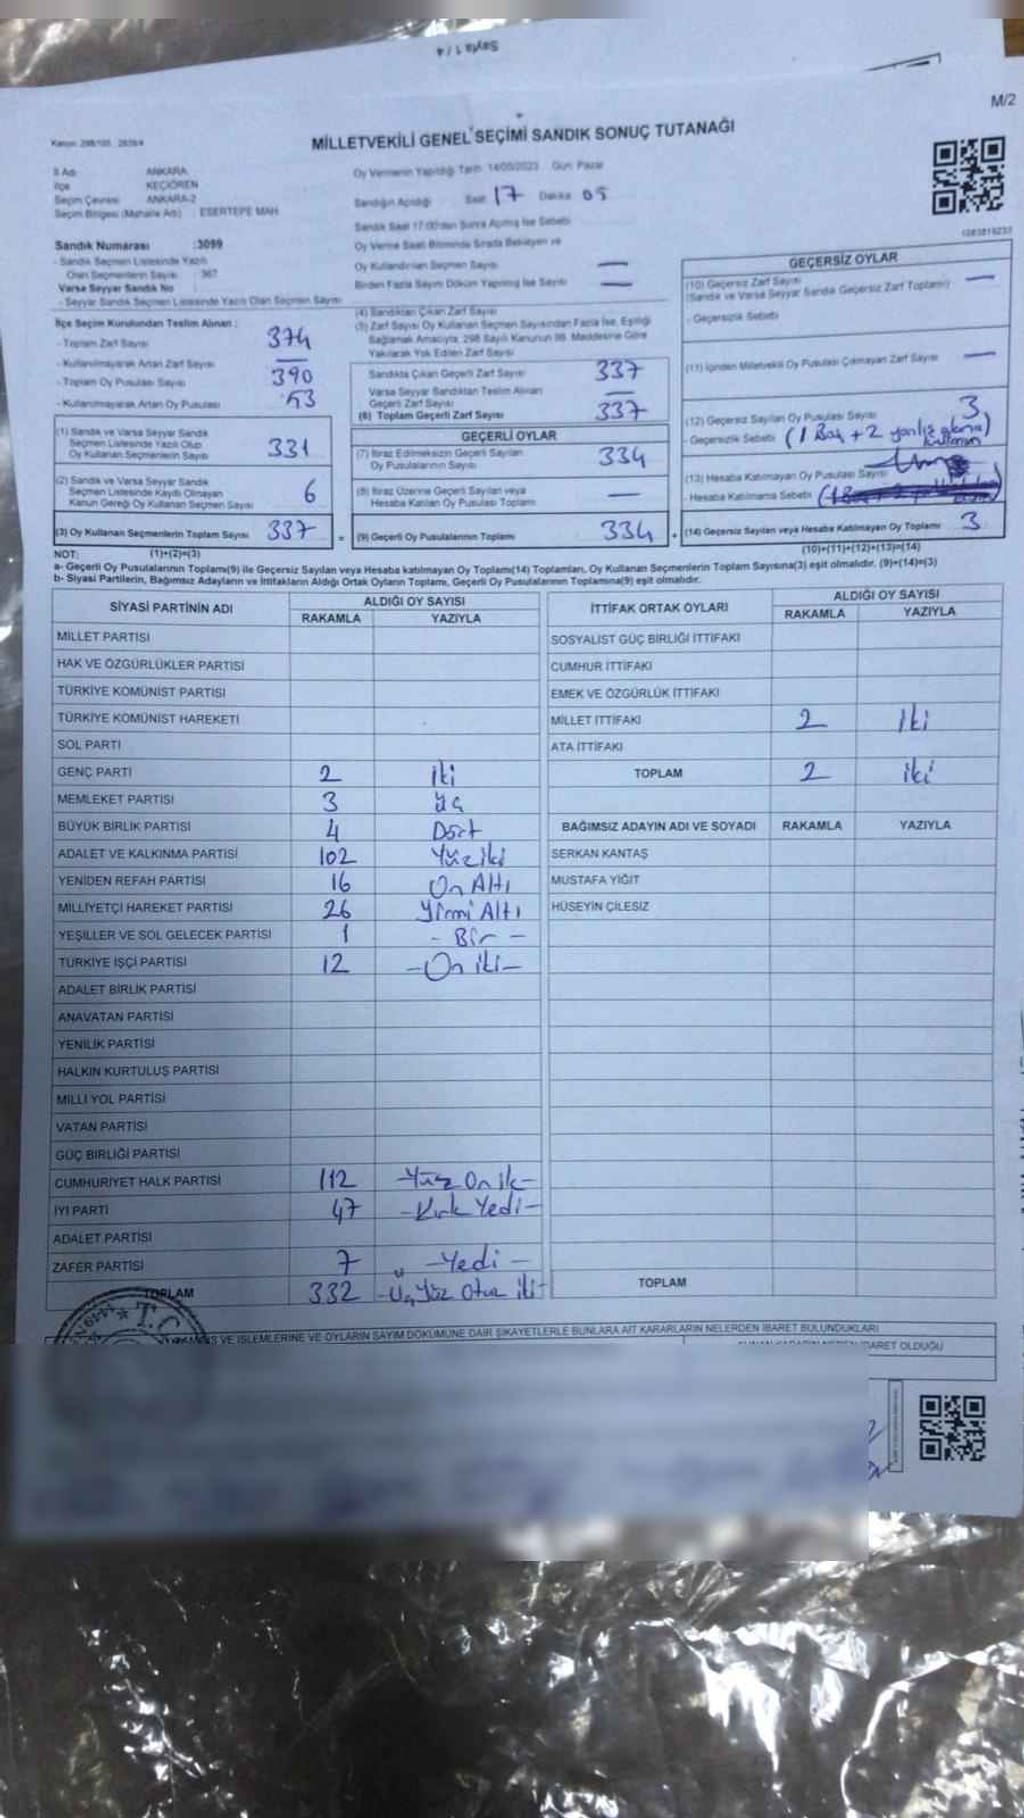 Sayfa 1 / 4
M/2
MİLLETVEKİLİ GENEL SEÇİMİ SANDIK SONUÇ TUTANAĞI
İl Adı ANKARA
İlçe KEÇİÖREN
Seçim Çevresi ANKARA-2
Seçim Bölgesi (Mahalle Adı) : ESERTEPE MAH
Oy Vermenin Yapıldığı Tarih: 14/05/2023 Gün: Pazar
Sandığın Açıldığı Saat 17 Dakika 05
Sandık Saat 17:00'dan Sonra Açılmış İse Sebebi
Oy Verme Saati Bitiminde Sırada Bekleyen ve
Oy Kullandırılan Seçmen Sayısı —
Birden Fazla Sayım Döküm Yapılmış İse Sayısı —
Sandık Numarası :3099
- Sandık Seçmen Listesinde Yazılı
Olan Seçmenlerin Sayısı : 367
Varsa Seyyar Sandık No
- Seyyar Sandık Seçmen Listesinde Yazılı Olan Seçmen Sayısı
İlçe Seçim Kurulundan Teslim Alınan :
- Toplam Zarf Sayısı 374
- Kullanılmayarak Artan Zarf Sayısı —
- Toplam Oy Pusulası Sayısı 390
- Kullanılmayarak Artan Oy Pusulası 53
(1) Sandık ve Varsa Seyyar Sandık
Seçmen Listesinde Yazılı Olup
Oy Kullanan Seçmenlerin Sayısı 331
(2) Sandık ve Varsa Seyyar Sandık
Seçmen Listesinde Kayıtlı Olmayan
Kanun Gereği Oy Kullanan Seçmen Sayısı 6
(3) Oy Kullanan Seçmenlerin Toplam Sayısı 337 =
(4) Sandıktan Çıkan Zarf Sayısı
(5) Zarf Sayısı Oy Kullanan Seçmen Sayısından Fazla İse, Eşitliği
Sağlamak Amacıyla, 298 Sayılı Kanunun 98. Maddesine Göre
Yakılarak Yok Edilen Zarf Sayısı
Sandıkta Çıkan Geçerli Zarf Sayısı 337
Varsa Seyyar Sandıktan Teslim Alınan
Geçerli Zarf Sayısı —
(6) Toplam Geçerli Zarf Sayısı 337
GEÇERLİ OYLAR
(7) İtiraz Edilmeksizin Geçerli Sayılan
Oy Pusulalarının Sayısı 334
(8) İtiraz Üzerine Geçerli Sayılan veya
Hesaba Katılan Oy Pusulası Toplamı —
(9) Geçerli Oy Pusulalarının Toplamı 334 +
GEÇERSİZ OYLAR
(10) Geçersiz Zarf Sayısı —
(Sandık ve Varsa Seyyar Sandık Geçersiz Zarf Toplamı)
- Geçersizlik Sebebi
(11) İçinden Milletvekili Oy Pusulası Çıkmayan Zarf Sayısı —
(12) Geçersiz Sayılan Oy Pusulası Sayısı 3
- Geçersizlik Sebebi (1 Boş + 2 yanlış
(13) Hesaba Katılmayan Oy Pusulası Sayısı
- Hesaba Katılmama Sebebi
(14) Geçersiz Sayılan veya Hesaba Katılmayan Oy Toplamı 3
NOT: (1)+(2)=(3) (10)+(11)+(12)+(13)=(14)
a- Geçerli Oy Pusulalarının Toplamı(9) ile Geçersiz Sayılan veya Hesaba katılmayan Oy Toplamı(14) Toplamları, Oy Kullanan Seçmenlerin Toplam Sayısına(3) eşit olmalıdır. (9)+(14)=(3)
b- Siyasi Partilerin, Bağımsız Adayların ve İttifakların Aldığı Ortak Oyların Toplamı, Geçerli Oy Pusulalarının Toplamına(9) eşit olmalıdır.
SİYASİ PARTİNİN ADI ALDIĞI OY SAYISI
RAKAMLA YAZIYLA
MİLLET PARTİSİ
HAK VE ÖZGÜRLÜKLER PARTİSİ
TÜRKİYE KOMÜNİST PARTİSİ
TÜRKİYE KOMÜNİST HAREKETİ
SOL PARTİ
GENÇ PARTİ 2 iki
MEMLEKET PARTİSİ 3 üç
BÜYÜK BİRLİK PARTİSİ 4 Dört
ADALET VE KALKINMA PARTİSİ 102 Yüziki
YENİDEN REFAH PARTİSİ 16 On Altı
MİLLİYETÇİ HAREKET PARTİSİ 26 Yirmi Altı
YEŞİLLER VE SOL GELECEK PARTİSİ 1 - Bir -
TÜRKİYE İŞÇİ PARTİSİ 12 -On iki-
ADALET BİRLİK PARTİSİ
ANAVATAN PARTİSİ
YENİLİK PARTİSİ
HALKIN KURTULUŞ PARTİSİ
MİLLİ YOL PARTİSİ
VATAN PARTİSİ
GÜÇ BİRLİĞİ PARTİSİ
CUMHURİYET HALK PARTİSİ 112 -Yüz On ik-
İYİ PARTİ 47 -Kırk Yedi-
ADALET PARTİSİ
ZAFER PARTİSİ 7 -Yedi-
TOPLAM 332 -Üç Yüz Otuz iki-
İTTİFAK ORTAK OYLARI ALDIĞI OY SAYISI
RAKAMLA YAZIYLA
SOSYALİST GÜÇ BİRLİĞİ İTTİFAKI
CUMHUR İTTİFAKI
EMEK VE ÖZGÜRLÜK İTTİFAKI
MİLLET İTTİFAKI 2 iki
ATA İTTİFAKI
TOPLAM 2 iki
BAĞIMSIZ ADAYIN ADI VE SOYADI RAKAMLA YAZIYLA
SERKAN KANTAŞ
MUSTAFA YİĞİT
HÜSEYİN ÇİLESİZ
TOPLAM
T.C.
VE İŞLEMLERİNE VE OYLARIN SAYIM DÖKÜMÜNE DAİR ŞİKAYETLERLE BUNLARA AİT KARARLARIN NELERDEN İBARET BULUNDUKLARI
İBARET OLDUĞU